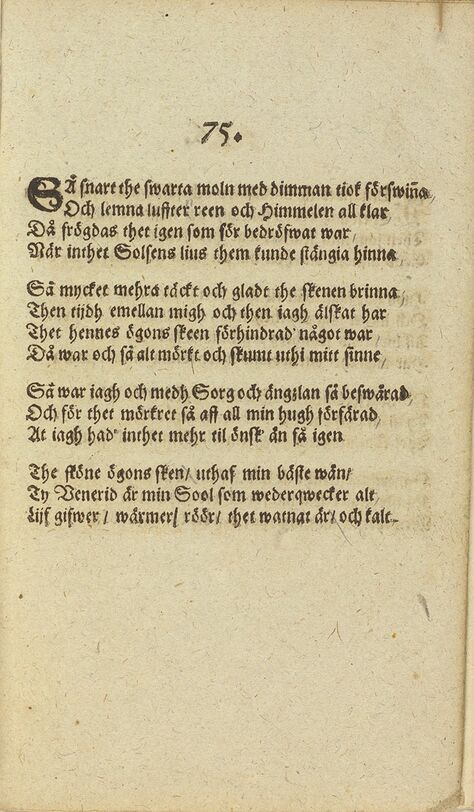 75.
SÅ snart the swarta moln med dimman tiok förswiña,
Och lemna lufften reen och Himmelen all klar,
Då frögdas thet igen som för bedröfwat war,
När inthet Solsens lius them kunde stängia hinna,
Så mycket mehra täckt och gladt the skenen brinna,
Then tijdh emellan migh och then iagh älskat har
Thet hennes ögons skeen förhindrad' något war,
Då war och så alt mörkt och skumt uthi mitt sinne,
Så war iagh och medh Sorg och ängzlan så beswärad,
Och för thet mörkret så aff all min hugh förfärad,
At iagh had' inthet mehr til önsk' än så igen
The sköne ögons sken/ uthaf min bäste wän/
Ty Venerid är min Sool som wederqwecker alt,
Lijf gifwer/ wärmer/ röör/ thet watnat är/ och kalt.